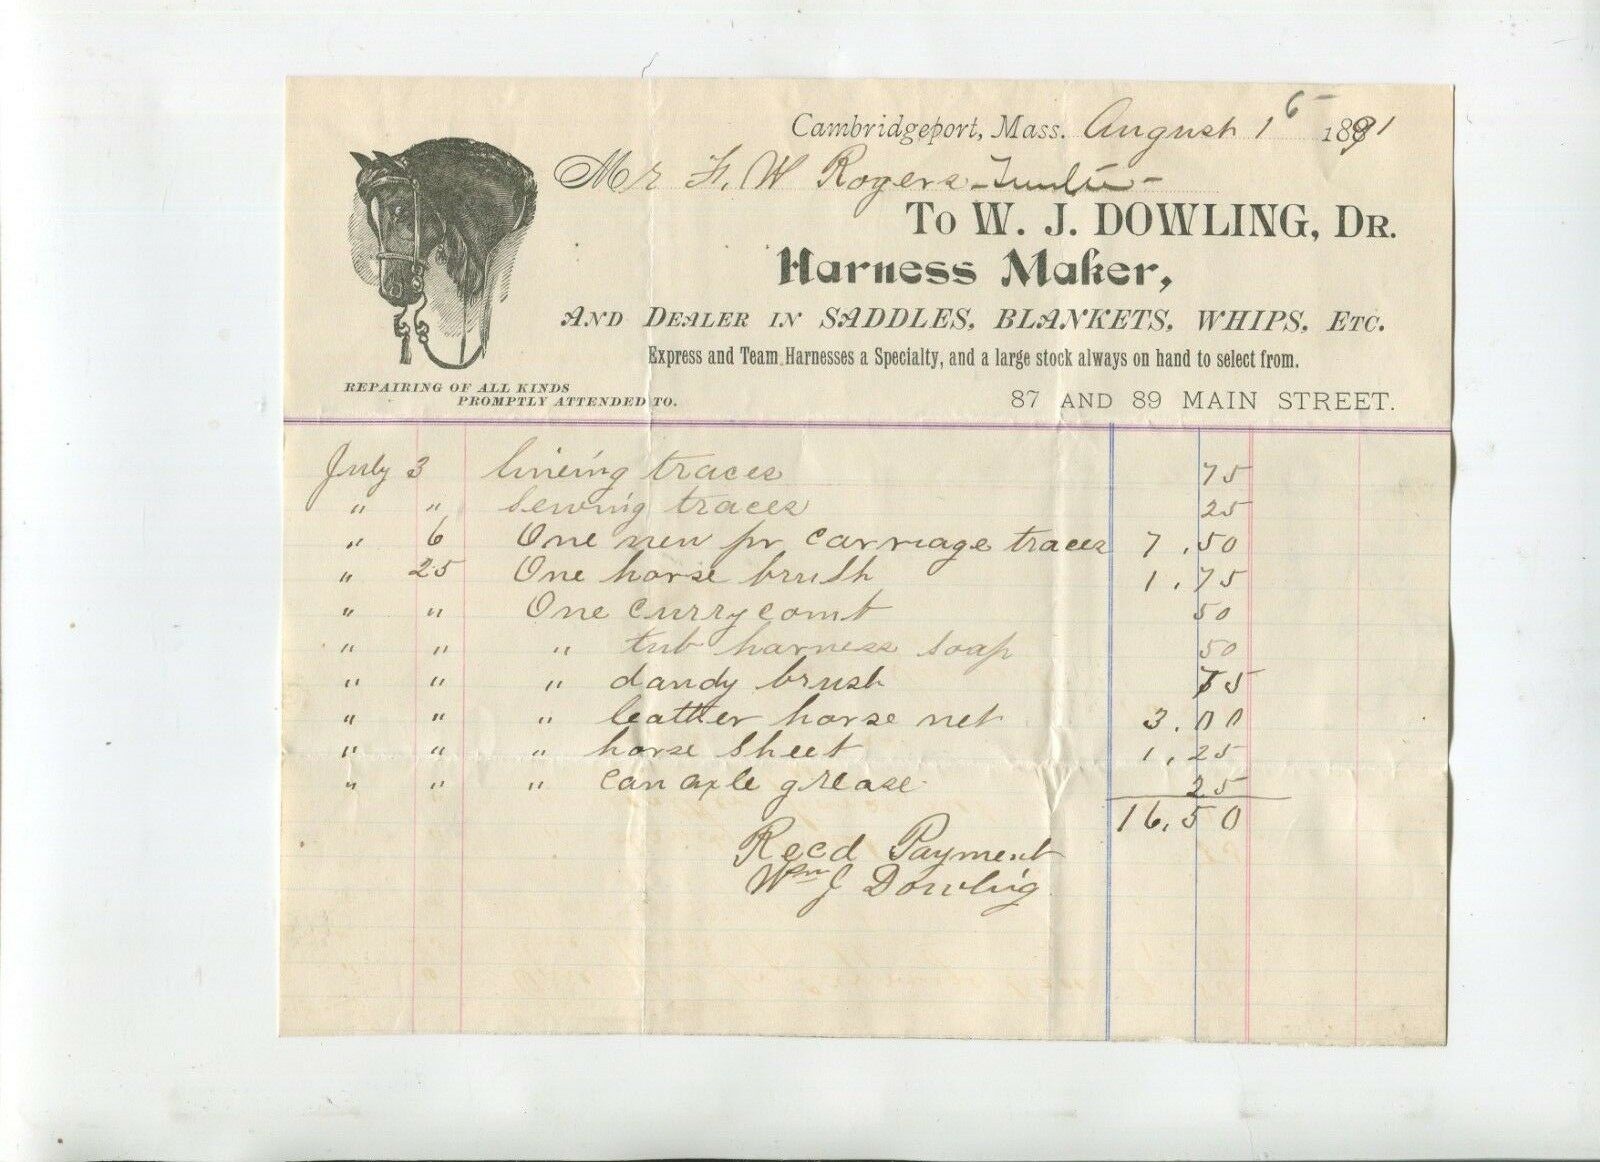 Cambridgeport, Mass. August 1 1891
Mr F. W Rogers
To W. J. DOWLING, DR.
Harness Maker,
AND DEALER IN SADDLES, BLANKETS, WHIPS, ETC.
Express and Team Harnesses a Specialty, and a large stock always on hand to select from.
REPAIRING OF ALL KINDS
PROMPTLY ATTENDED TO.
87 AND 89 MAIN STREET.
July 3 lineing traces 75
" " sewing traces 25
" 6 One new pr carriage traces 7.50
" 25 One horse brush 1.75
" " One curry comt 50
" " " tub harness soap 50
" " " dandy brush 75
" " " leather horse net 3.00
" " " horse sheet 1.25
" " " can axle grease 25
16.50
Recd Payment
Wm J Dowling